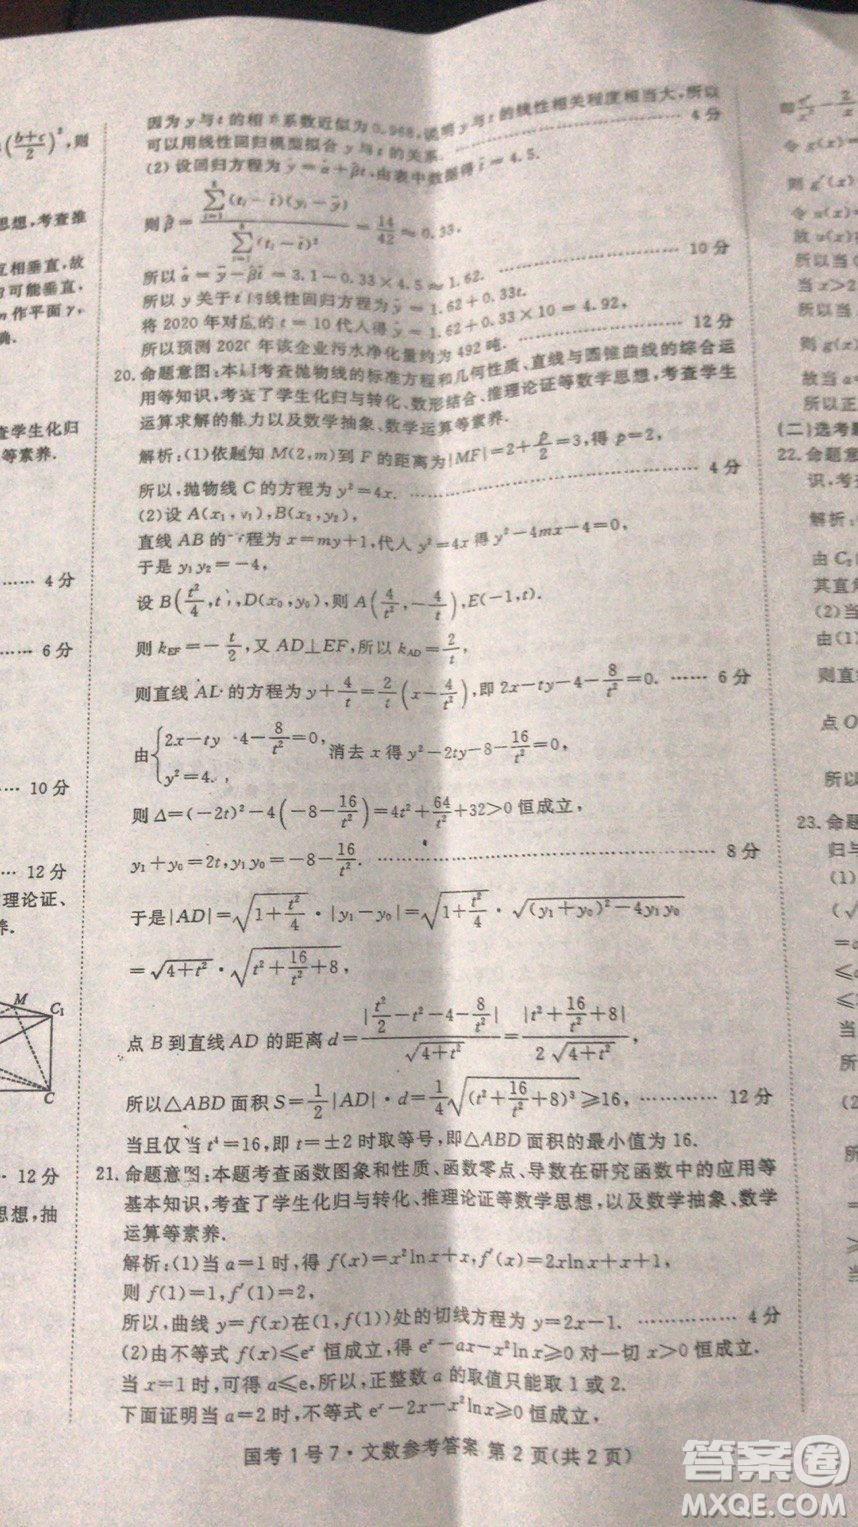 (b+c/2)²,则
思想,考查推
互相垂直,故
可能垂直,
作平面γ,
查学生化归
等素养.
…… 4 分
…… 6 分
… 10 分
… 12 分
理论证、
养.
M
C₁
C
… 12 分
思想,抽
因为 y 与 t 的相 系数近似为 0.968,说明 y 与 t 的线性相关程度相当大,所以
可以用线性回归模型拟合 y 与 t 的关系. …… 4 分
(2) 设回归方程为 ŷ=α̂+β̂t,由表中数据得 t̄=4.5.
则 β̂=∑(tᵢ-t̄)(yᵢ-ȳ)/∑(tᵢ-t̄)²=14/42≈0.33,
所以 α̂=ȳ-β̂t̄=3.1-0.33×4.5≈1.62. …… 10 分
所以 y 关于 t 线性回归方程为 ŷ=1.62+0.33t.
将 2020 年对应的 t=10 代人得 ŷ=1.62+0.33×10=4.92,
所以预测 2020 年该企业污水净化量约为 492 吨. …… 12 分
20. 命题意图:本题考查抛物线的标准方程和几何性质、直线与圆锥曲线的综合运
用等知识,考查了学生化归与转化、数形结合、推理论证等数学思想,考查学生
运算求解的能力以及数学抽象、数学运算等素养.
解析:(1)依题知 M(2,m)到 F 的距离为|MF|=2+p/2=3,得 p=2,
所以,抛物线 C 的方程为 y²=4x. …… 4 分
(2)设 A(x₁,y₁),B(x₂,y₂),
直线 AB 的 程为 x=my+1,代人 y²=4x 得 y²-4my-4=0,
于是 y₁y₂=-4,
设 B(t²/4,t),D(x₀,y₀),则 A(4/t²,-4/t),E(-1,t).
则 k_EF=-t/2,又 AD⊥EF,所以 k_AD=2/t,
则直线 AD 的方程为 y+4/t=2/t(x-4/t²),即 2x-ty-4-8/t²=0. …… 6 分
由{2x-ty-4-8/t²=0, y²=4x, 消去 x 得 y²-2ty-8-16/t²=0,
则 Δ=(-2t)²-4(-8-16/t²)=4t²+64/t²+32>0 恒成立,
y₁+y₀=2t,y₁y₀=-8-16/t². …… 8 分
于是|AD|=√(1+t²/4)·|y₁-y₀|=√(1+t²/4)·√((y₁+y₀)²-4y₁y₀)
=√(4+t²)·√(t²+16/t²+8),
点 B 到直线 AD 的距离 d=|t²/2-t²-4-8/t²|/√(4+t²)=|t²+16/t²+8|/(2√(4+t²)),
所以△ABD 面积 S=1/2|AD|·d=1/4√((t²+16/t²+8)³)≥16, ………… 12 分
当且仅当 t⁴=16,即 t=±2 时取等号,即△ABD 面积的最小值为 16.
21. 命题意图:本题考查函数图象和性质、函数零点、导数在研究函数中的应用等
基本知识,考查了学生化归与转化、推理论证等数学思想,以及数学抽象、数学
运算等素养.
解析:(1)当 a=1 时,得 f(x)=x²lnx+x,f′(x)=2xlnx+x+1,
则 f(1)=1,f′(1)=2,
所以,曲线 y=f(x)在(1,f(1))处的切线方程为 y=2x-1. …… 4 分
(2)由不等式 f(x)≤eˣ 恒成立,得 eˣ-ax-x²lnx≥0 对一切 x>0 恒成立.
当 x=1 时,可得 a≤e,所以,正整数 a 的取值只能取 1 或 2.
下面证明当 a=2 时,不等式 eˣ-2x-x²lnx≥0 恒成立,
国考 1 号 7·文数参考答案 第 2 页(共 2 页)
令 g(x)
则 g′(x)
令 u(x)
故 u(x)
所以当
当 x>2
所以当
则 g(x)
故当
所以正
(二)选考
22. 命题意
识,考查
解析:
由 C₂
其直角
(2)当
由(1)
则直线
点 O
所以
23. 命题
归与
(1)
(√
=a
≤
≤
所
(2
当
=
≥
所
答案圈
MXQE.COM